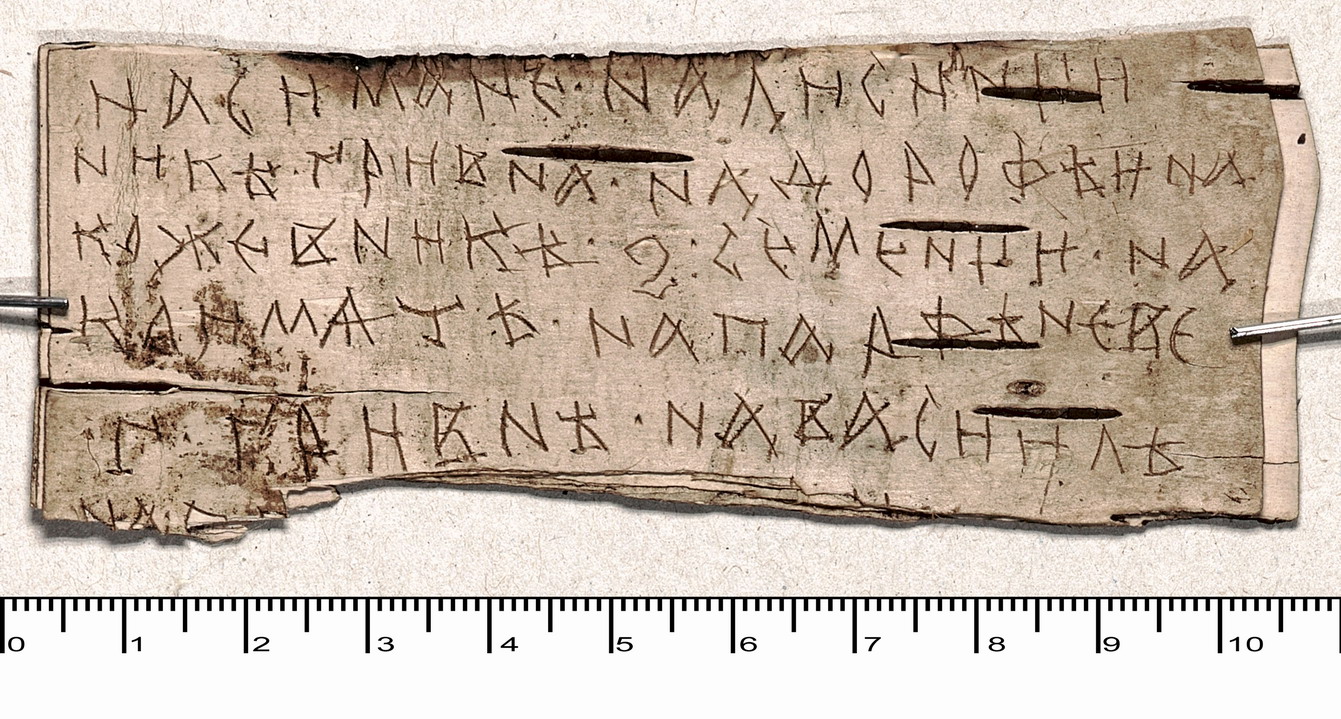 НАСИМАНЕ·НАЛИСИНЦИ
НИКѢ·ГРИВНА·НАДОРОФѢИНА
КОЖЕВНИКѢ·З·СЕМЕНЦИ·НА
КЛИМѦТѢ·НАПАРФѢНЕВЕ
Г·ГРИВНѢ·НАВАСИИЛѢ